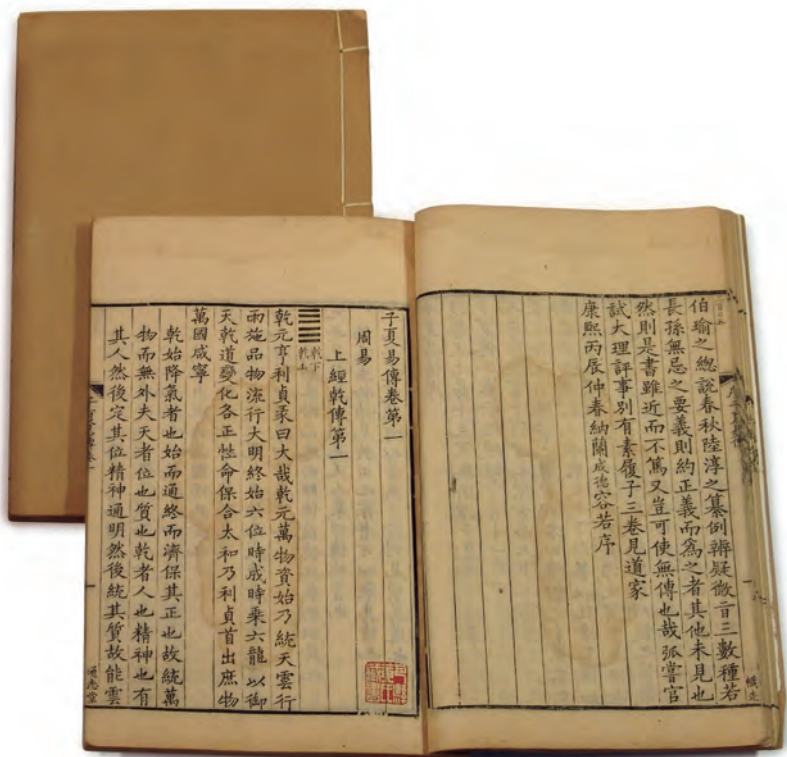 伯瑜之總說春秋陸淳之纂例辨疑微旨三數種若
長孫無忌之要義則約正義而為之者其他未見也
然則是書雖近而不篤又豈可使無傳也哉弧嘗官
試大理評事別有素履子三卷見道家
康熙丙辰仲春納蘭成德容若序
子夏易傳卷第一
周易
上經乾傳第一
乾下
乾上
乾元亨利貞彖曰大哉乾元萬物資始乃統天雲行
雨施品物流行大明終始六位時成時乘六龍以御
天乾道變化各正性命保合太和乃利貞首出庶物
萬國咸寧
乾始降氣者也始而通終而濟保其正也故統萬
物而無外夫天者位也質也乾者人也精神也有
其人然後定其位精神通明然後統其質故能雲
通志堂